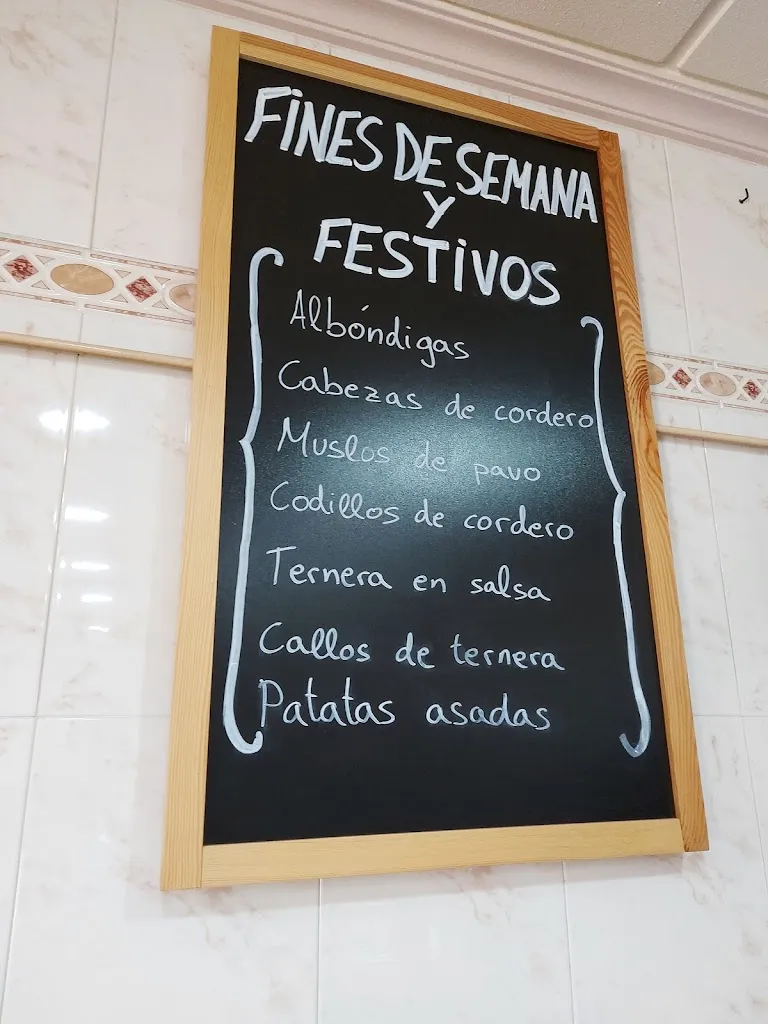 FINES DE SEMANA
Y
FESTIVOS
Albóndigas
Cabezas de cordero
Muslos de pavo
Codillos de cordero
Ternera en salsa
Callos de ternera
Patatas asadas